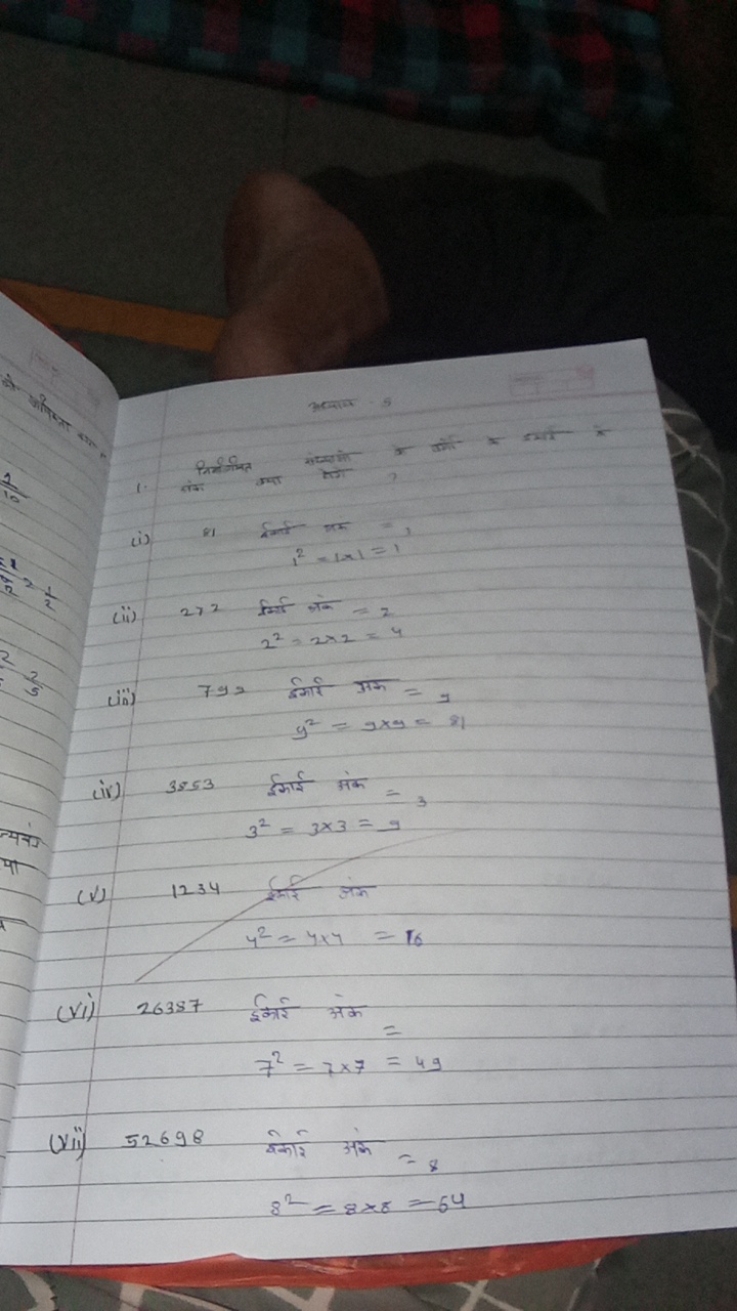 अध्याय - 5
1. निम्नलिखित संख्याओं के वर्गों के इकाई के
अंक क्या होंगे ?
(i) 81 ईकाई अंक = 1
1² = 1x1 = 1
(ii) 272 ईकाई अंक = 2
2² = 2x2 = 4
(iii) 799 ईकाई अंक = 9
9² = 9x9 = 81
(iv) 3853 ईकाई अंक = 3
3² = 3x3 = 9
(v) 1234 ईकाई अंक
4² = 4x4 = 16
(vi) 26387 ईकाई अंक =
7² = 7x7 = 49
(vii) 52698 ईकाई अंक = 8
8² = 8x8 = 64
2
10
1
2
2
5